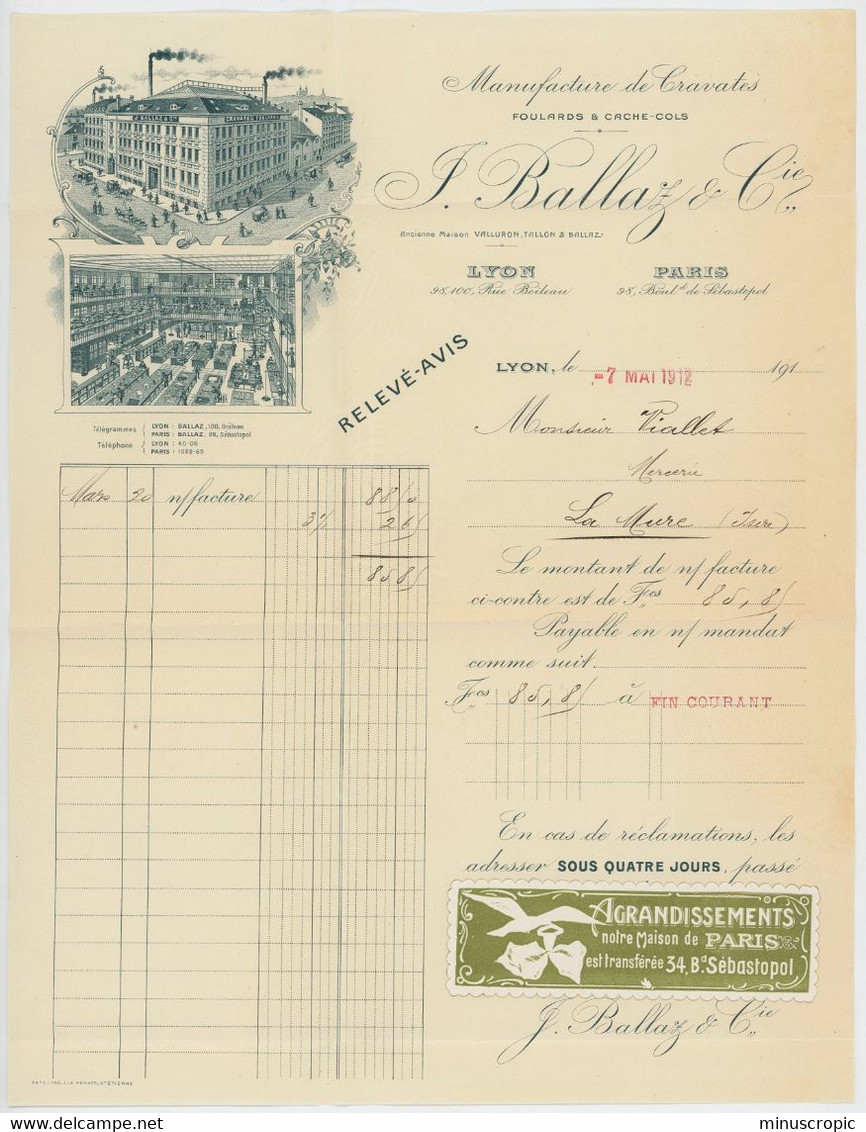 J. BALLAZ & Cie
CRAVATES FOULARDS
Manufacture de Cravates
FOULARDS & CACHE-COLS
J. Ballaz & Cie
Ancienne Maison VALLURON, TALLON & BALLAZ
LYON
98, 100, Rue Boileau
PARIS
98, Boul.d de Sébastopol
Télégrammes { LYON : BALLAZ, 100, Boileau
PARIS : BALLAZ, 98, Sébastopol
Téléphone { LYON : 40-06
PARIS : 1089-69
RELEVÉ-AVIS
LYON, le -7 MAI 1912 191
Monsieur Viallet
Mercerie
La Mure (Isère)
Mars 20 n/ facture 88 50
3% 2 65
85 85
Le montant de n/ facture
ci-contre est de Fcs 85,85
Payable en n/ mandat
comme suit.
Fcs 85,85 à FIN COURANT
En cas de réclamations, les
adresser SOUS QUATRE JOURS, passé
AGRANDISSEMENTS
notre Maison de PARIS
est transférée 34, Bd Sébastopol
J. Ballaz & Cie
minuscropic